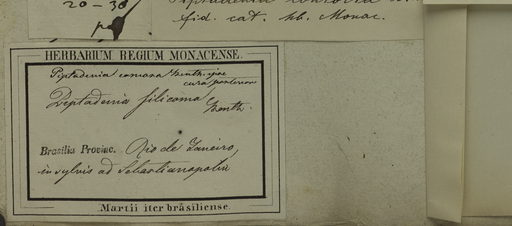 20-30
fid. cat. hb. Monac.
HERBARIUM REGIUM MONACENSE.
Piptadenia comosa Benth. ipse
cura posteriore
Piptadenia filicoma
Benth.
Brasilia Provinc. Rio de Janeiro,
in sylvis ad Sebastianopolin
Martii iter brâsiliense.